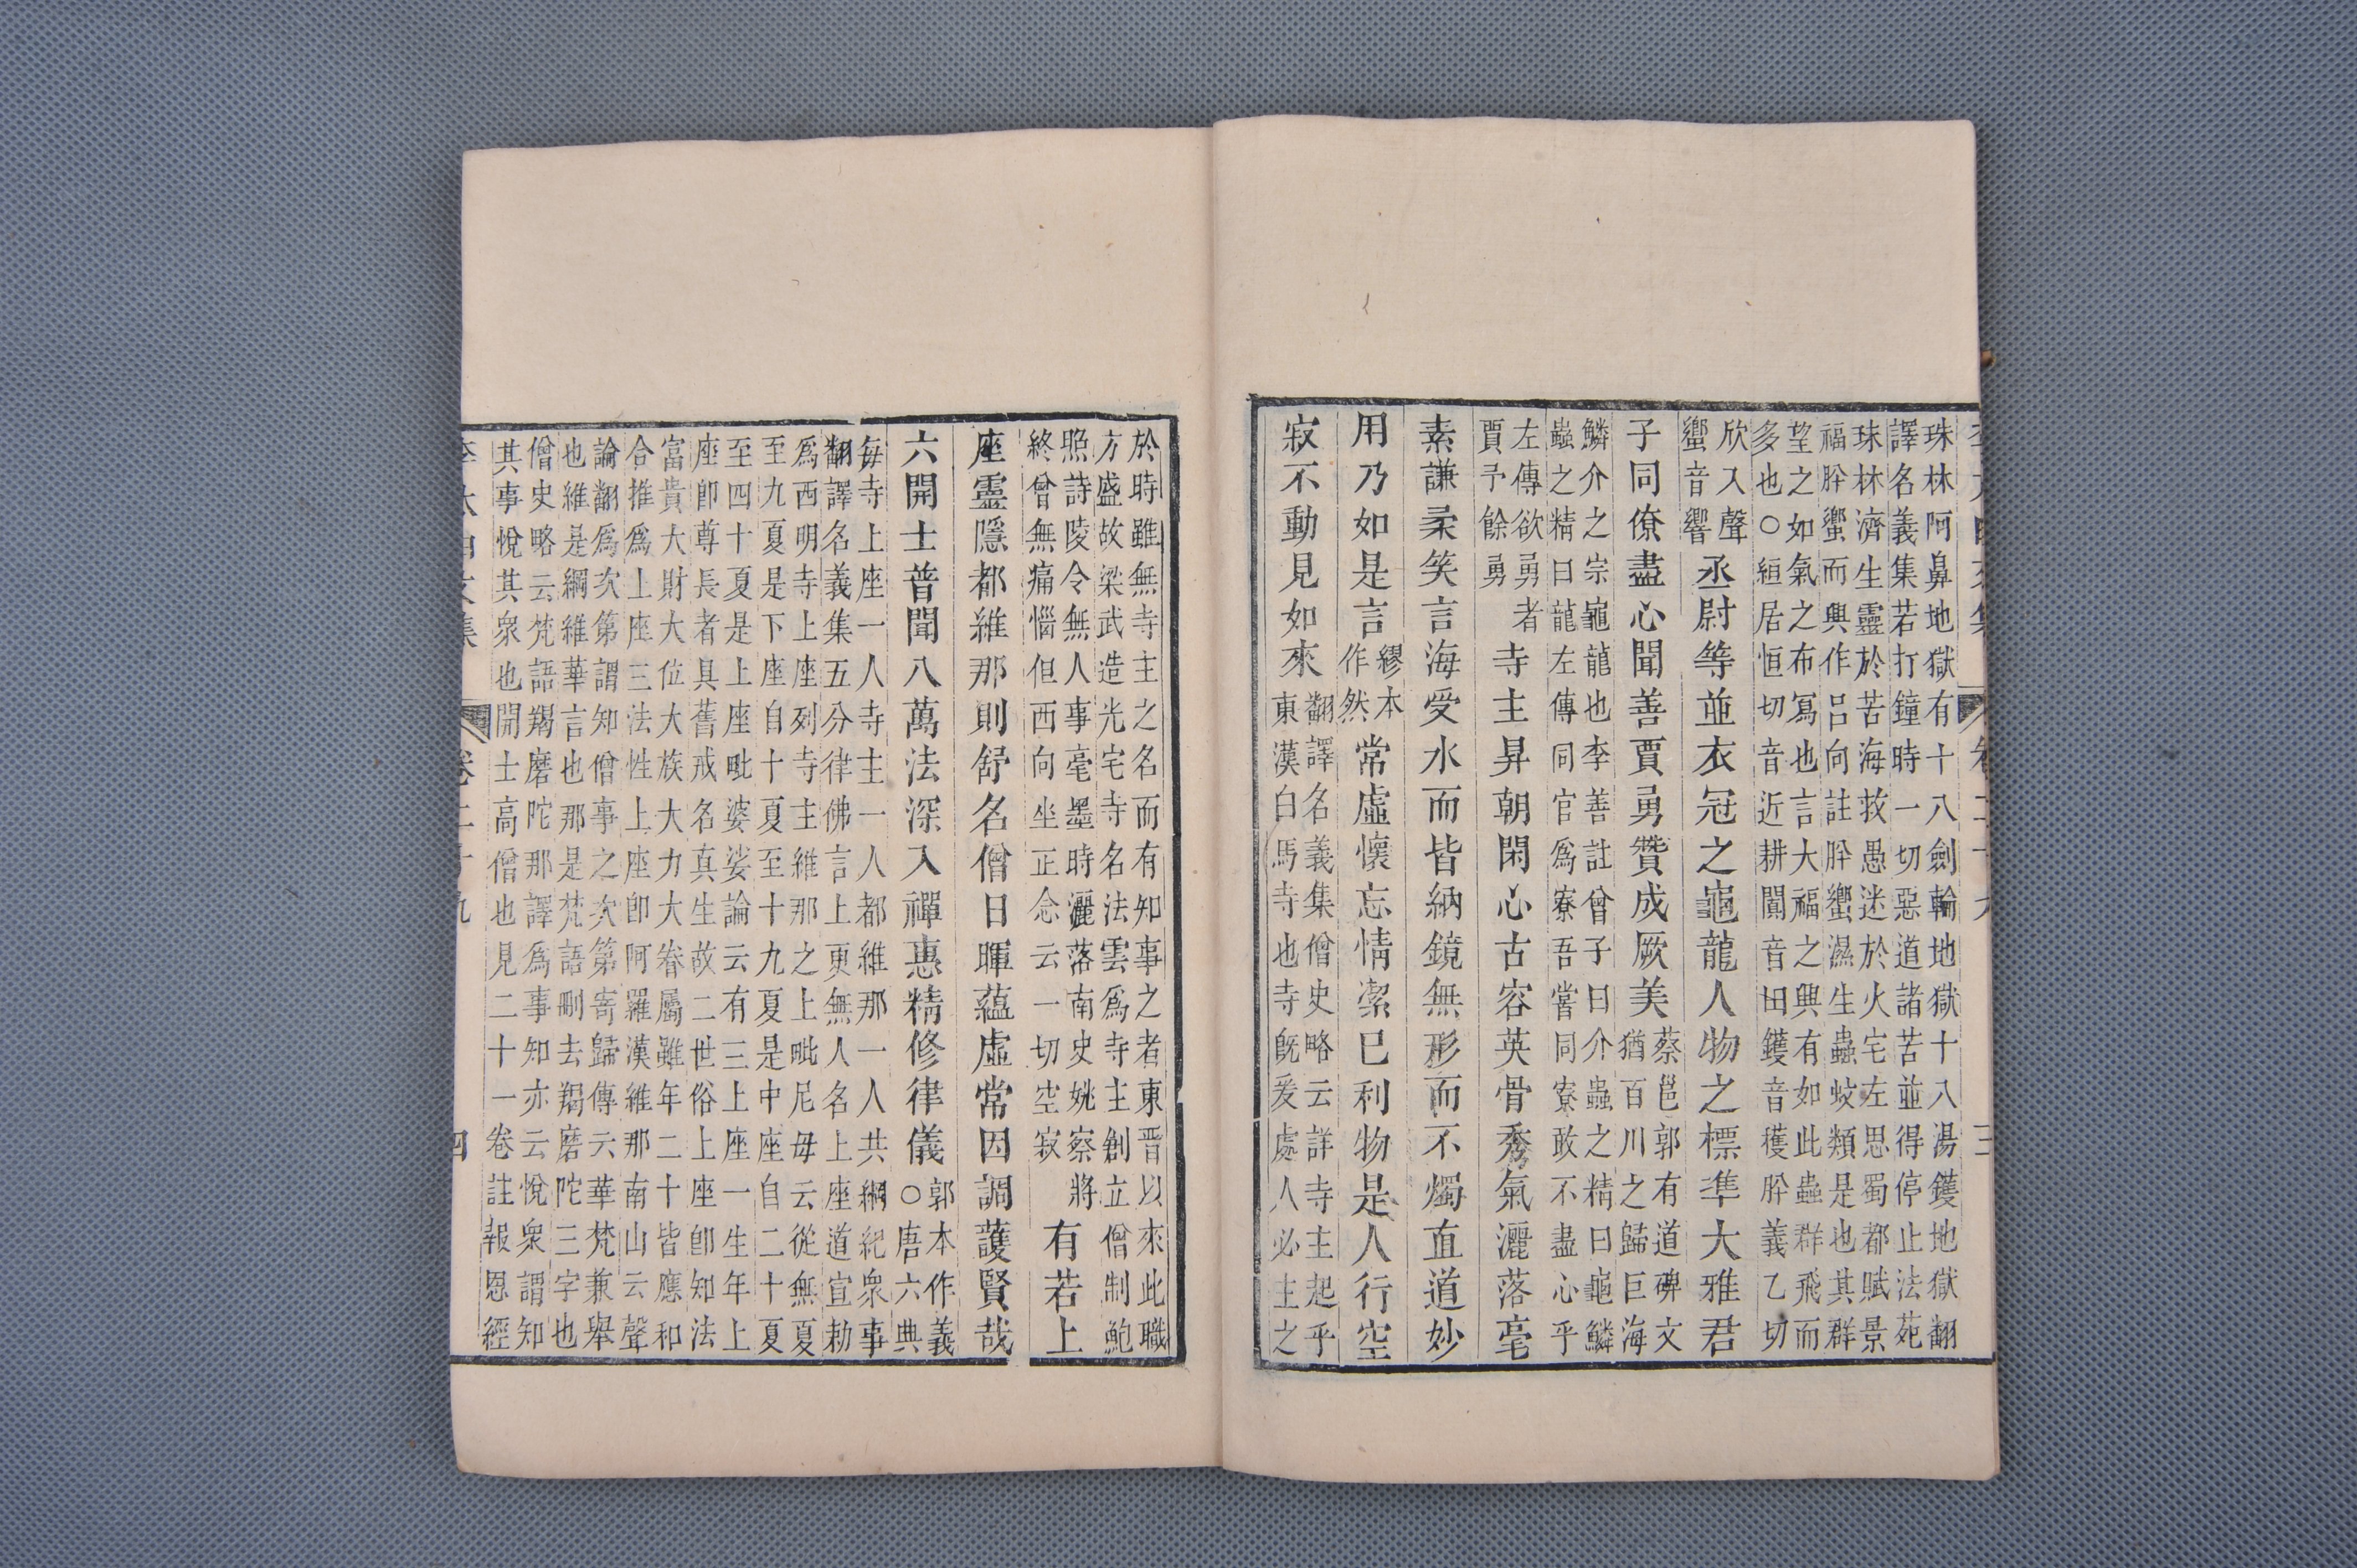 珠林阿鼻地獄有十八劍輪地獄十八湯鑊地獄翻
譯名義集若打鐘時一切惡道諸苦並得停止法苑
珠林濟生靈於苦海救愚迷於火宅左思蜀都賦景
福肸蠁而興作呂向註肸蠁濕生蟲蚊類是也其群
望之如氣之布寫也言大福之興有如此蟲群飛而
多也○絙居恒切音近耕闐音田鑊音穫肸義乙切
欣入聲
蠁音響
丞尉等並衣冠之龜龍人物之標準大雅君
子同僚盡心聞善賈勇贊成厥美
蔡邕郭有道碑文
猶百川之歸巨海
鱗介之宗龜龍也李善註曾子曰介蟲之精曰龜鱗
蟲之精曰龍左傳同官爲寮吾嘗同寮敢不盡心乎
左傳欲勇者
賈予餘勇
寺主昇朝閑心古容英骨秀氣灑落毫
素謙柔笑言海受水而皆納鏡無形而不燭直道妙
用乃如是言
繆本
作然
常虛懷忘情潔已利物是人行空
寂不動見如來
翻譯名義集僧史略云詳寺主起乎
東漢白馬寺也寺旣爰處人必主之
於時雖無寺主之名而有知事之者東晋以來此職
方盛故梁武造光宅寺名法雲爲寺主創立僧制鮑
照詩陵令無人事毫墨時灑落南史姚察將
終曾無痛惱但西向坐正念云一切空寂
有若上
座靈隱都維那則舒名僧日暉蘊虛常因調護賢哉
六開士普聞八萬法深入禪惠精修律儀
郭本作義
○唐六典
每寺上座一人寺主一人都維那一人共綱紀衆事
翻譯名義集五分律佛言上更無人名上座道宣勅
爲西明寺上座列寺主維那之上毗尼毋云從無夏
至九夏是下座自十夏至十九夏是中座自二十夏
至四十夏是上座毗婆娑論云有三上座一生年上
座卽尊長者具舊戒名真生故二世俗上座卽知法
富貴大財大位大族大力大眷屬雖年二十皆應和
合推爲上座三法性上座卽阿羅漢維那南山云聲
論翻爲次第謂知僧事之次第寄歸傳云華梵兼舉
也維是綱維華言也那是梵語刪去羯磨陀三字也
僧史略云梵語羯磨陀那譯爲事知亦云悅衆謂知
其事悅其衆也開士高僧也見二十一卷註報恩經
李太白文集
卷二十九
四